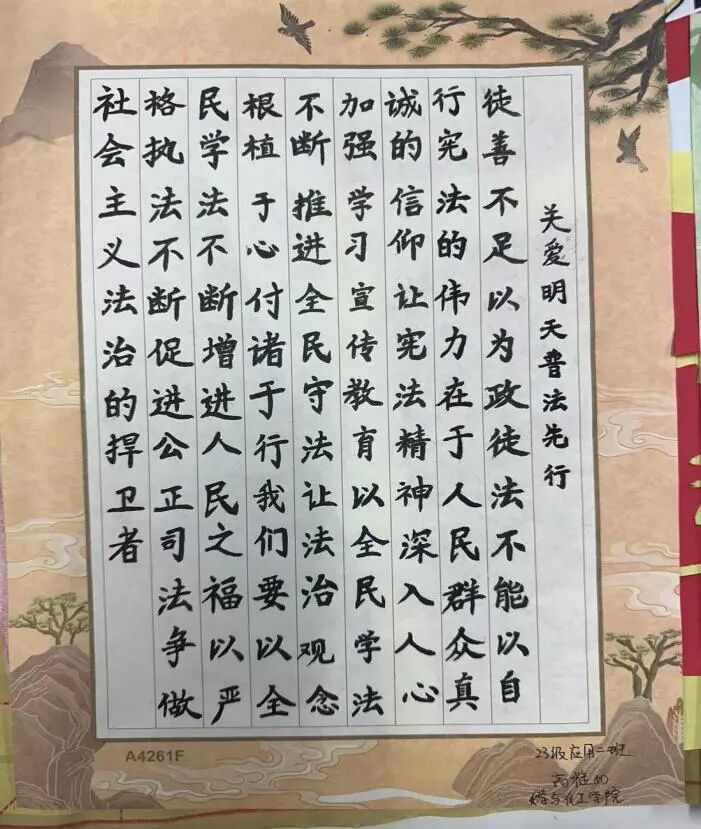 关爱明天普法先行
徒善不足以为政徒法不能以自
行宪法的伟力在于人民群众真
诚的信仰让宪法精神深入人心
加强学习宣传教育以全民学法
不断推进全民守法让法治观念
根植于心付诸于行我们要以全
民学法不断增进人民之福以严
格执法不断促进公正司法争做
社会主义法治的捍卫者
A4261F
23级应用二班
化工学院